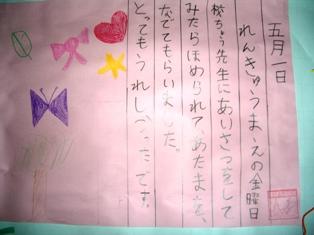 五月一日
れんきゅうまえの金曜日
校ちょう先生にあいさつをして
みたらほめられて、あたまを、
なでてもらいました。
とってもうれしかったです。